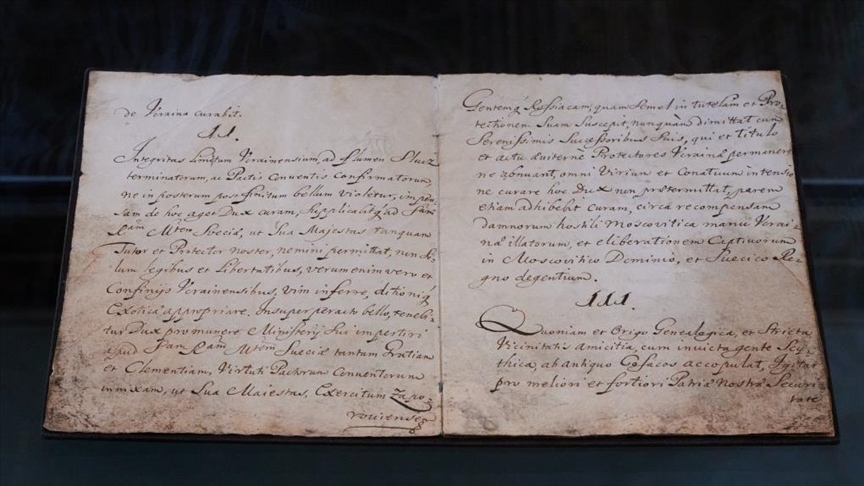 de Vcraina curabit.
II.
Integritas Limitum Vcrainensium, ad flumen Slucz
terminatorum, ac Pactis Conventis Confirmatorum,
ne in posterum post finitum bellum violetur,
de hoc aget Dux curam, Supplicabitq, ad
Mtem Sueciæ, ut Sua Majestas tanquam
Tutor et Protector Noster, nemini permittat, non So-
lum legibus et Libertatibus, verum enim vero et
Confinijs Vcrainensibus, vim inferre, ditioniq
Exoticæ appropriare. Insuper peracto bello, tenebi-
tur Dux pro munere Ministerij Sui impertiri
apud Mtem Sueciæ tantam Gratiam
et Clementiam, Virtuti Pactorum Conventorum
innixam, ut Sua Majestas, Exercitum Zapo-
roviensẽ
Gentemq Rossiacam, quam Semel in tutelam et Pro-
tectionem Suam Suscepit, nunquam dimittat cum
Serenissimis Successoribus Suis, qui et titulo
et actu, diuiternè Protectores Vcrainæ permanere
ne abnuant, omni Virium et Conatuum intensio
ne curare hoc Dux non prætermittat, parem
etiam adhibebit curam, circa recompensam
damnorum hostili Moscovitica manu Vcrai-
næ illatorum, et eliberationem Captivorum
in Moscovitico Dominio, et Suecico Re-
gno degentium.
III.
Quoniam et Origo Genealogica, et Stricta
Vicinitatis amicitia, cum invicta gente Scy-
thica, ab antiquo Cosacos accopulat, Igitur
pro meliori et fortiori Patriæ Nostræ Securi-
tate